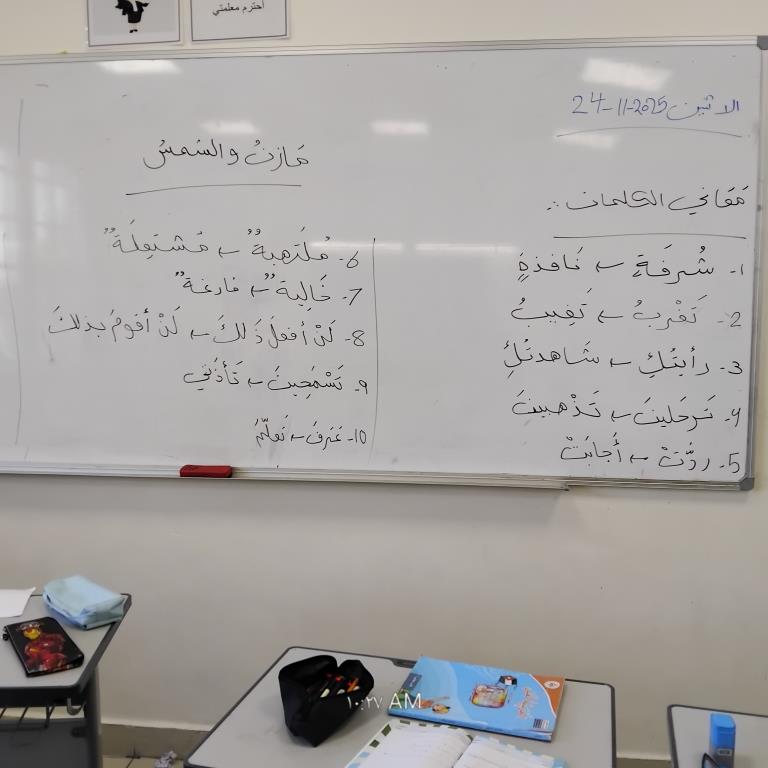 أحترم معلمتي
الاثنين 24-11-2025
مَازنُ والشمسُ
مَعَاني الكلمات :.
1- شُرفَةٍ ← نَافذةٍ
2- تَغْربُ ← تَغِيبُ
3- رأيتُكِ ← شَاهدتُكِ
4- تَرحَلينَ ← تَذْهبينَ
5- ردَّتْ ← أَجابَتْ
6- مُلتَهبةٌ ← مُشتَعِلَةٌ
7- خَاليةٌ ← فارغةٌ
8- لَنْ أفعلَ ذَلكَ ← لَنْ أقومَ بذلكَ
9- تَسْمَحِينَ ← تَأذَني
10- عَرَفَ ← تَعلّمَ
١٠:٢٧ AM